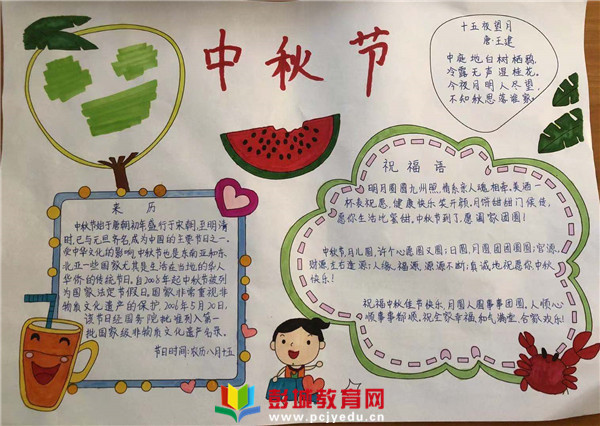 中秋节
十五夜望月
唐:王建
中庭地白树栖鸦,
冷露无声湿桂花。
今夜月明人尽望,
不知秋思落谁家。
来 历
中秋节始于唐朝初年,盛行于宋朝,至明清
时,已与元旦齐名,成为中国的主要节日之一。
受中华文化的影响,中秋节也是东南亚和东
北亚一些国家尤其是生活在当地的华人
华侨的传统节日。自2008年起中秋节被列
为国家法定节假日。国家非常重视非
物质文化遗产的保护,2006年5月20日,
该节日经国务院批准列入第一
批国家级非物质文化遗产名录。
节日时间:农历八月十五
祝 福 语
明月圆圆九州照,情系亲人魂相牵,美酒一
杯表祝愿,健康快乐笑开颜,月饼甜甜门侯徒,
愿你生活比蜜甜,中秋节到了,愿阖家团圆!
中秋节,月儿圆,许个心愿图又圆:日圆,月圆,团团圆圆;官源,
财源,左右逢源;人缘,福源,源源不断;真诚地祝愿你中秋
快乐!
祝福中秋佳节快乐,月圆人圆事事团圆,人顺心
顺事事都顺,祝全家幸福和气满堂,合家欢乐!
彭城教育网
www.pcjyedu.cn